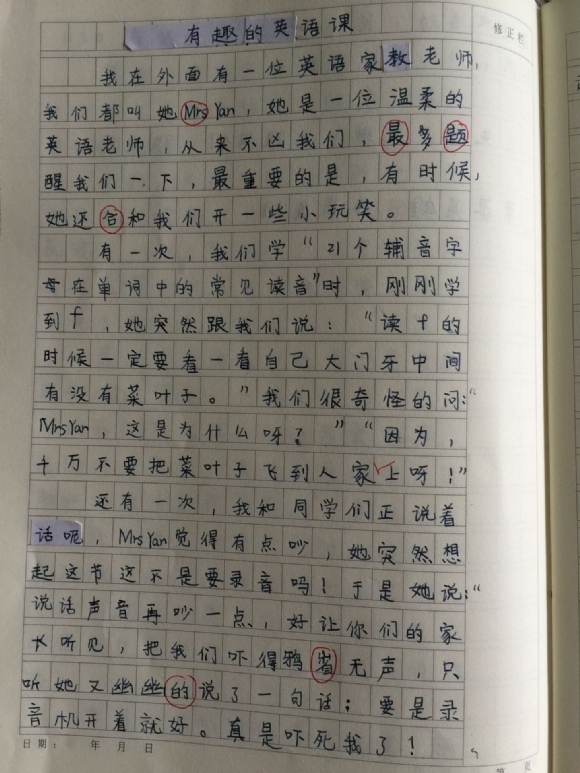 有趣的英语课
修正栏
我在外面有一位英语家教老师,
我们都叫她Mrs Yan,她是一位温柔的
英语老师,从来不凶我们,最多题
醒我们一下,最重要的是,有时候,
她还合和我们开一些小玩笑。
有一次,我们学“21个辅音字
母在单词中的常见读音”时,刚刚学
到f,她突然跟我们说:“读f的
时候一定要看一看自己大门牙中间
有没有菜叶子。”我们很奇怪的问:“
Mrs Yan,这是为什么呀?”“因为,
千万不要把菜叶子飞到人家上呀!”
还有一次,我和同学们正说着
话呢,Mrs Yan觉得有点吵,她突然想
起这节这不是要录音吗!于是她说:“
说话声音再吵一点,好让你们的家
长听见,把我们吓得鸦省无声,只
听她又幽幽的说了一句话;要是录
音机开着就好。真是吓死我了!
日期: 年 月 日